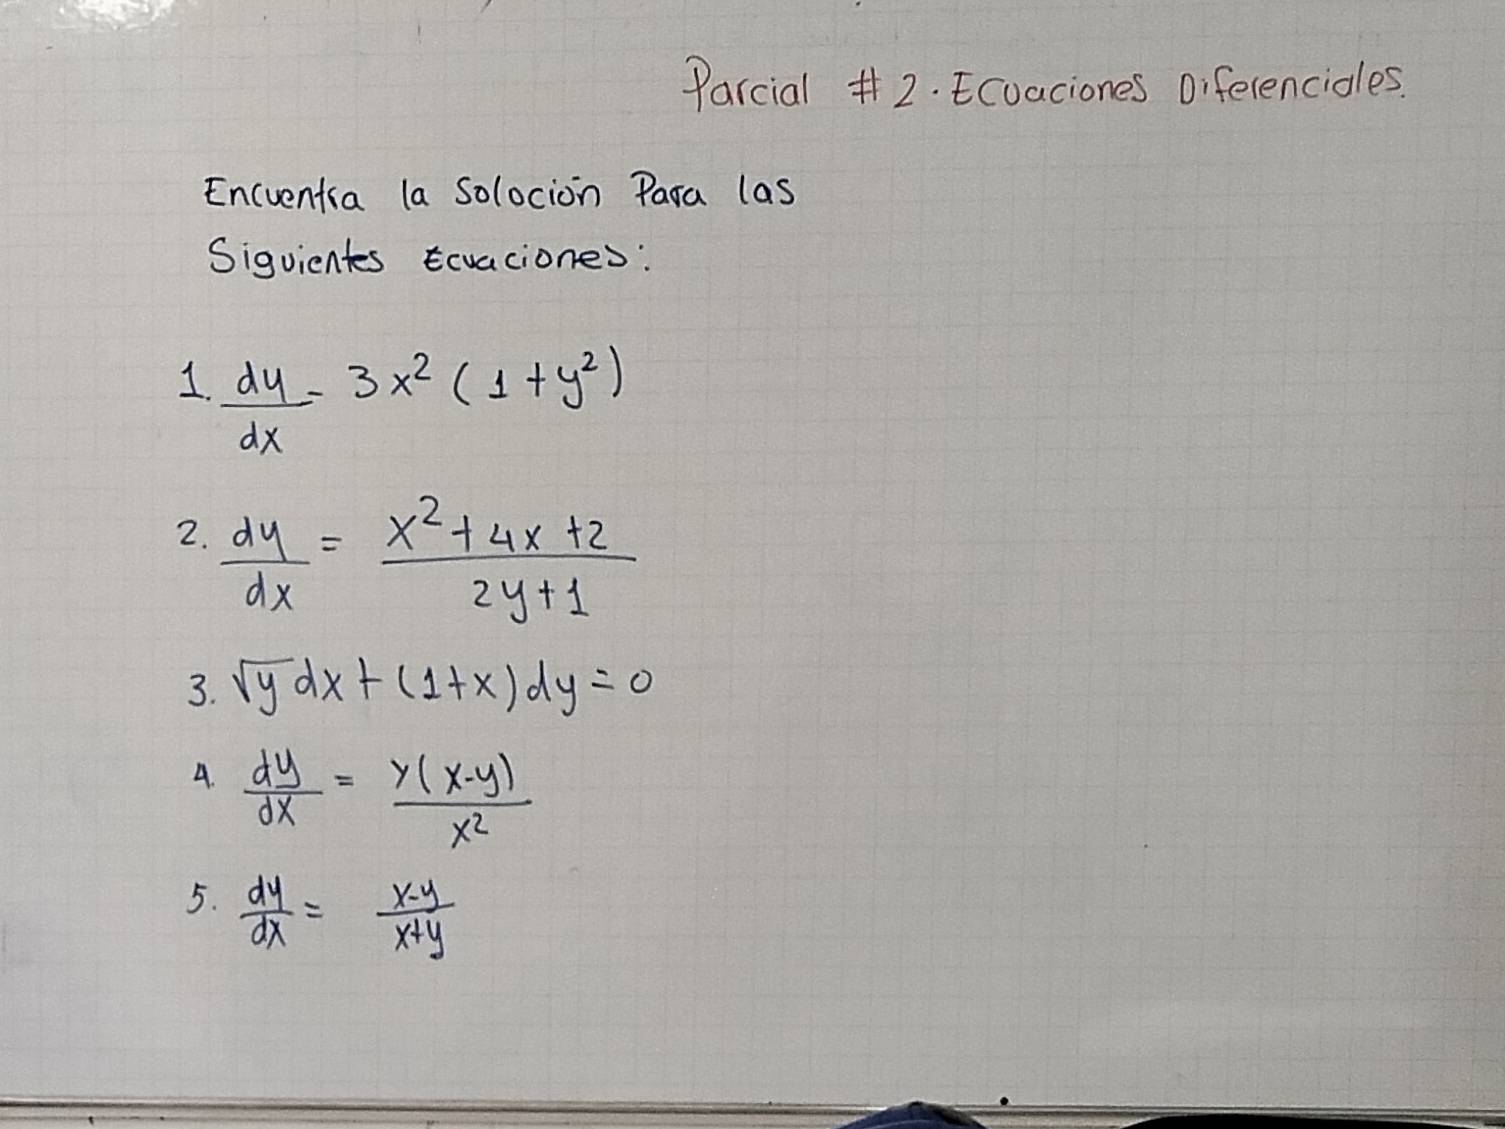 Parcial # 2. Ecuaciones Diferenciales.
Encuentra la Solocion Para las
Siguientes Ecuaciones:
1. dy/dx - 3x² (1+y²)
2. dy/dx = x²+4x+2/2y+1
3. √y dx + (1+x)dy = 0
4. dy/dx = y(x-y)/x²
5. dy/dx = x-y/x+y